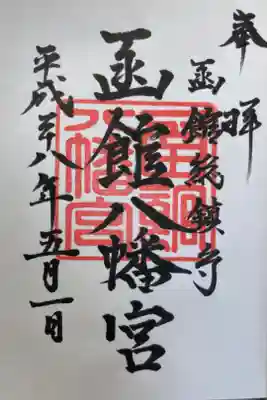 奉拝
函館総鎮守
函館八幡宮
平成廿八年五月一日